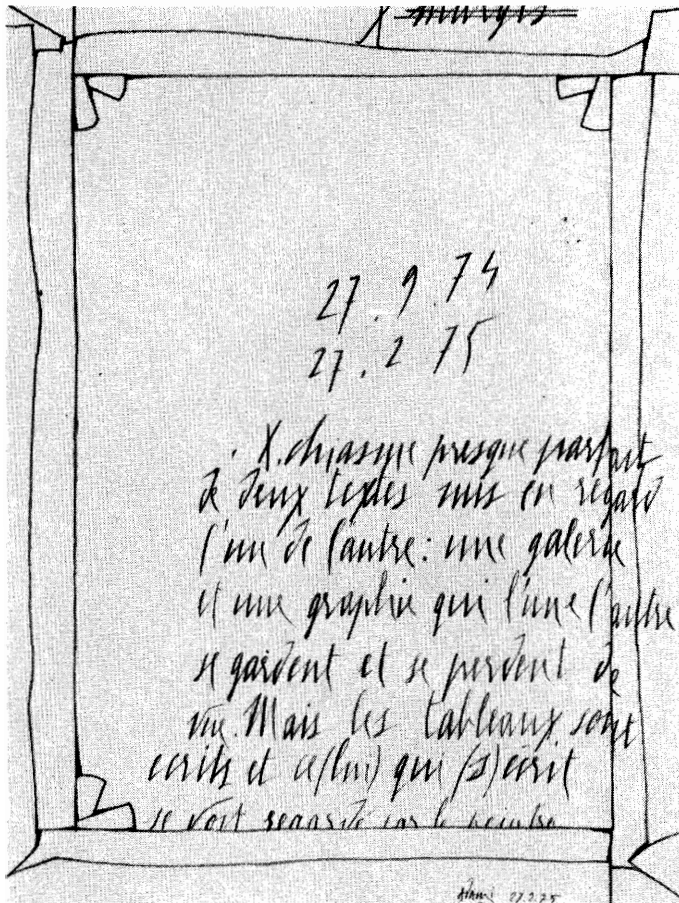 marges
27.9.74
27.2 75
. X. chiasme presque parfait
de deux textes mis en regard
l'un de l'autre : une galerie
et une graphie qui l'une l'autre
se gardent et se perdent de
vue. Mais les tableaux sont
écrits et ce(lui) qui (s)écrit
se voit regardé par le peintre
Adami 27.2.75